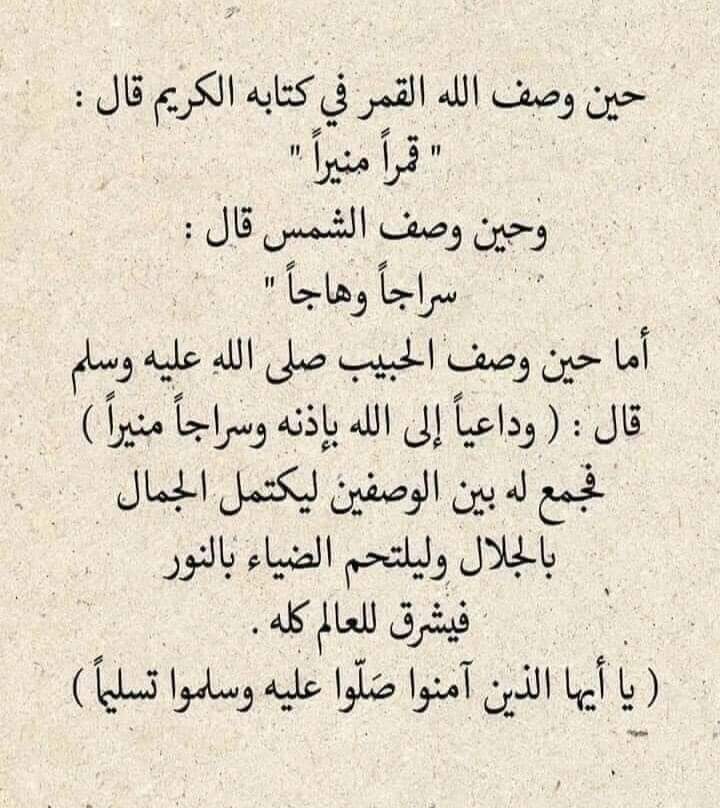 حين وصف الله القمر في كتابه الكريم قال :
" قمراً منيراً "
وحين وصف الشمس قال :
سراجاً وهاجاً "
أما حين وصف الحبيب صلى الله عليه وسلم
قال : ( وداعياً إلى الله بإذنه وسراجاً منيراً )
فجمع له بين الوصفين ليكتمل الجمال
بالجلال وليلتحم الضياء بالنور
فيشرق للعالم كله .
( يا أيها الذين آمنوا صَلّوا عليه وسلموا تسليماً )